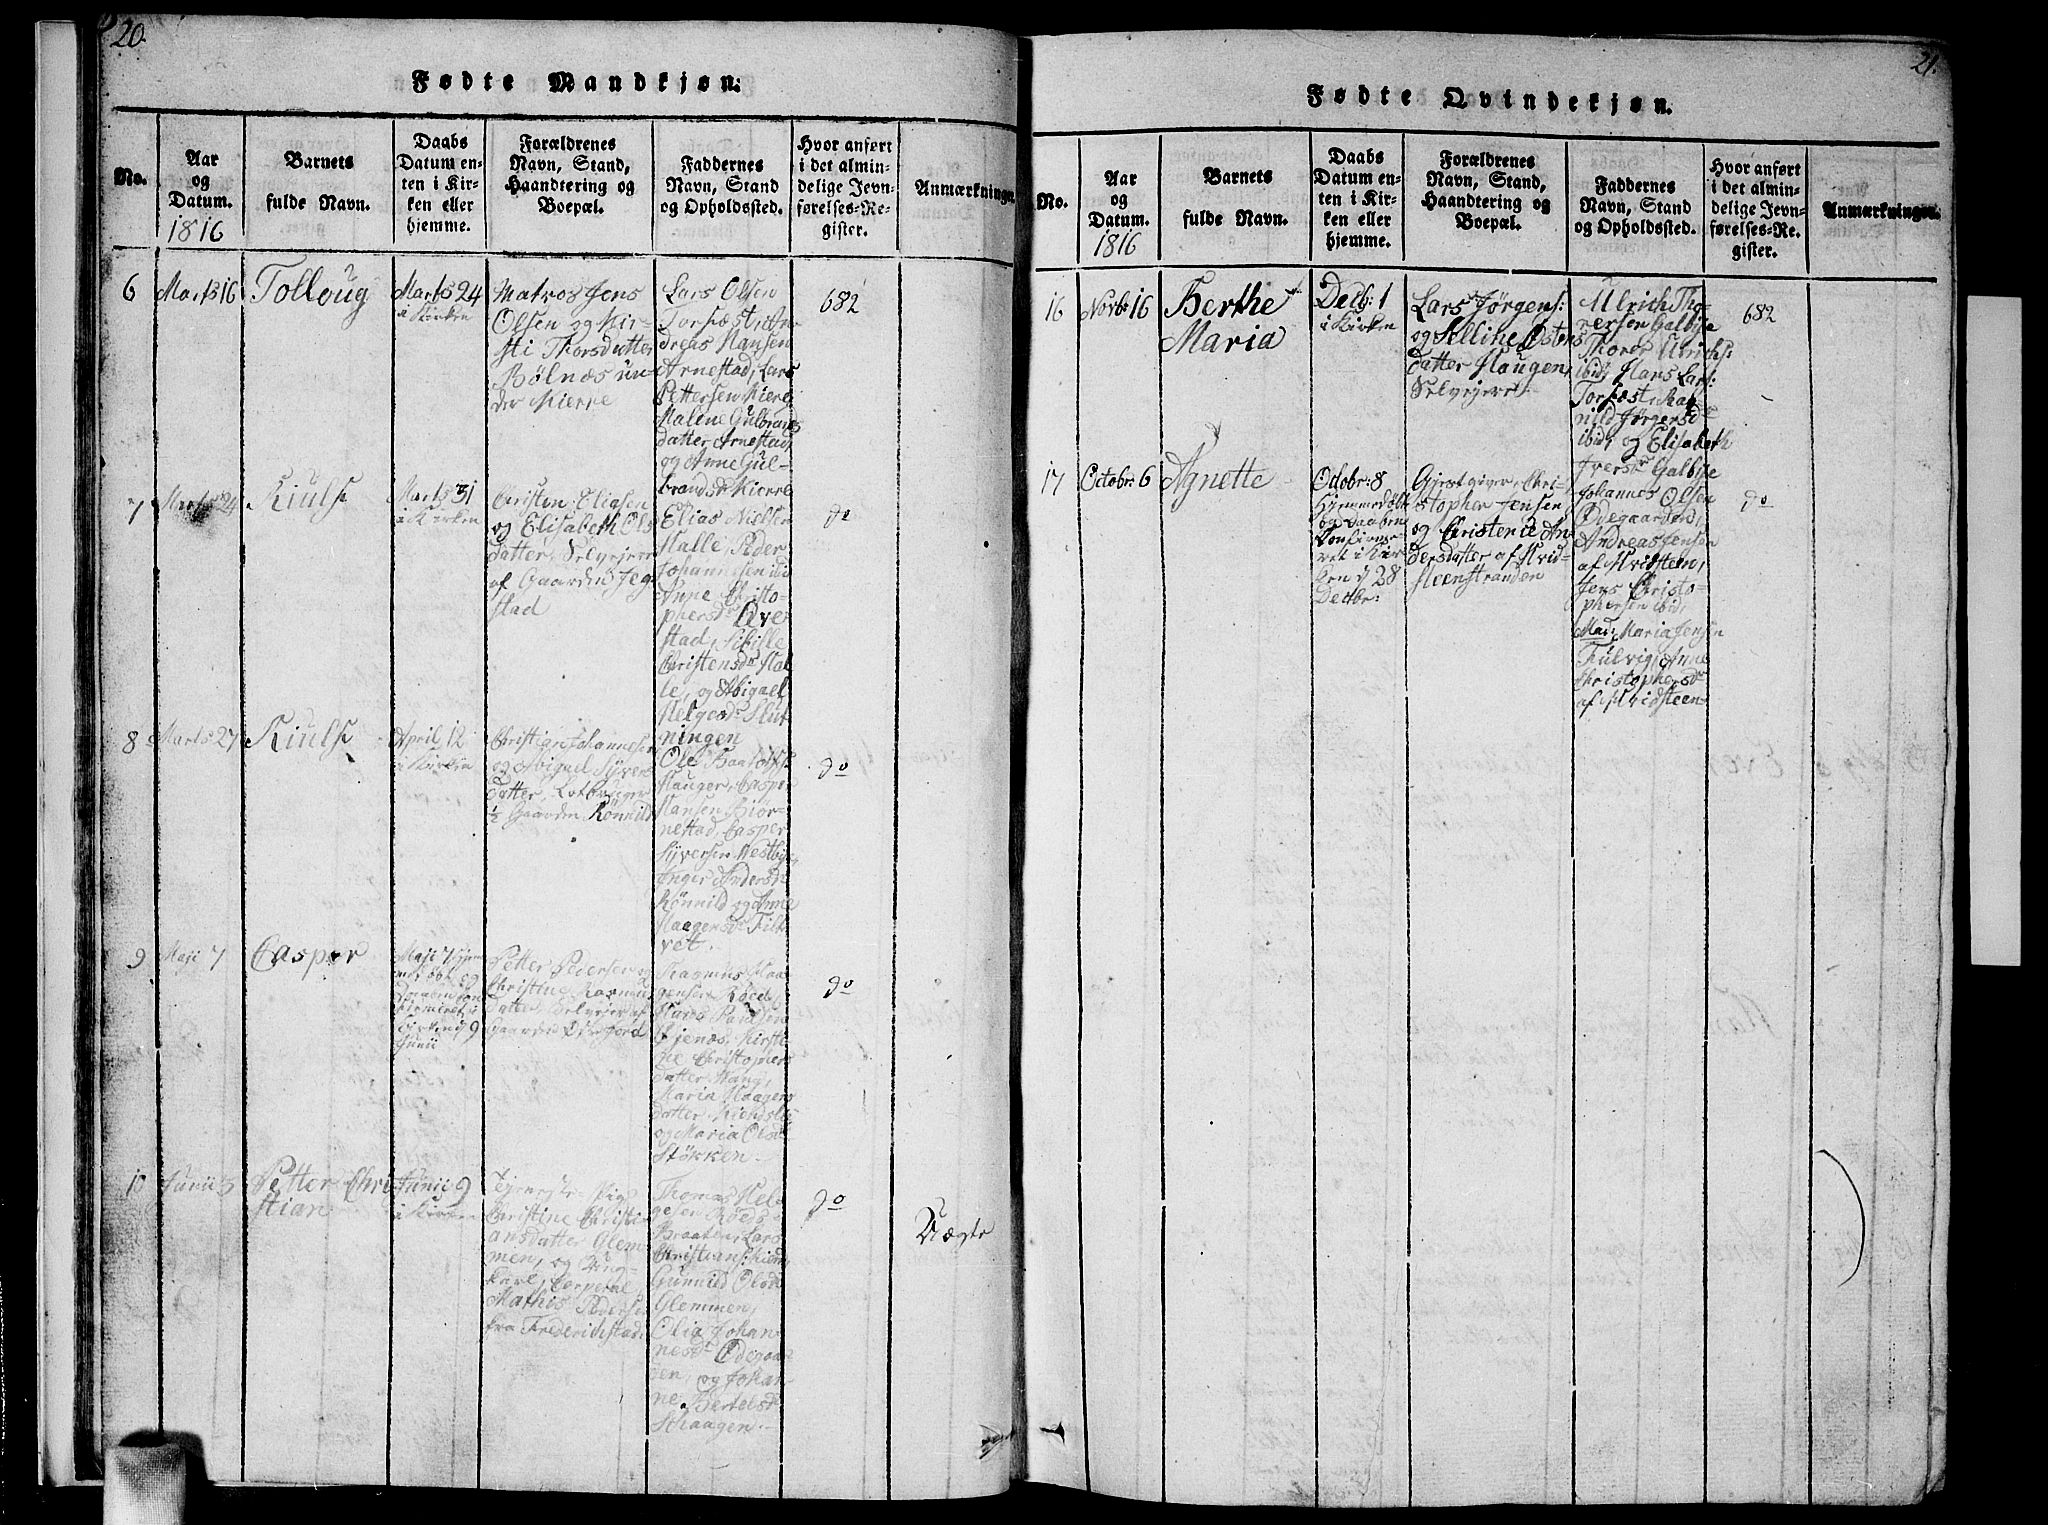 20.
Fødte Mandkjøn.
No.
Aar
og
Datum.
1816
Barnets
fulde Navn.
Daabs
Datum en-
ten i Kir-
ken eller
hjemme.
Forældrenes
Navn, Stand,
Haandtering og
Boepæl.
Faddernes
Navn, Stand
og Opholdssted.
Hvor anført
i det almin-
delige Jevn-
førelses-Re-
gister.
Anmærkninger.
6
Marts 16
Tolloug
Marts 24
i Kirken
Matros Jens
Olsen og Kir-
sti Thorsdatter
Bølnæs un-
der Kierre
Lars Olsen
Torpæst, An-
dreas Hansen
Arnestad, Lars
Pettersen Kierre
Malene Gulbrands
datter Arnestad,
og Anne Gul-
brandsdr Kierre
682
7
Marts 24
Kiulse
Marts 31
i Kirken
Christen Eliasen
og Elisabeth Ols
datter, Selvejere
af Gaarden Jeg-
stad
Elias Nielsen
Halle, Peder
Johannesen ibi
Anne Christo-
phersdr Qve-
stad, Sibille
Christensdr Hal
le, og Abigael
Helgesdr Slut-
ningen
do
8
Marts 27
Kiulse
April 12
i Kirken
Christian Johannesen
og Abigael Syvers
datter, Lotbruger
1/2 Gaarden Rønnild
Ole
Hauger, Casper
Hansen Biør-
nestad, Casper
Syversen Westbye,
Inger Andersdr
Rønnild og Anne
Haagensdr Filt-
vet.
do
9
Maji 7
Casper
Maji 7 hjem-
medøbt og
Daaben con-
firmeret i
Kirken d 9
Junii
Petter Pedersen og
Christine Rasmus
datter, Selvejer af
Gaarden Odersfjord
Rasmus Haa-
gensen Røed,
Paulsen
Kirsti-
ne Christophers
datter Wang,
Maria Haagens
datter
og Maria Olsdr
Støkken.
do
10
Junii 3
Petter Chri
stian
Junii 9
i Kirken
Tjeneste-Pige
Christine Christi-
ansdatter Glem-
men, og Ung-
karl, Corporal
Mathis Pedersen
fra Frederichstad.
Thomas Hel-
gesen Røeds-
Braaten, Lars
Christians:
Gunnild Olsdr
Glemmen,
Olia Johan-
nesdr Ødegaar-
den, og Johan-
ne Bertelsdr
Skaagen.
do
Uægte
21.
Fødte Qvindekjøn.
No.
Aar
og
Datum.
1816
Barnets
fulde Navn.
Daabs
Datum en-
ten i Kir-
ken eller
hjemme.
Forældrenes
Navn, Stand,
Haandtering og
Boepæl.
Faddernes
Navn, Stand
og Opholdssted.
Hvor anført
i det almin-
delige Jevn-
førelses-Re-
gister.
Anmærkninger.
16
Novbr 16
Berthe
Maria
Decb: 1
i Kirken
Lars Jørgens:
og Elline Ostens
datter Haugen,
Selvejere
Ulrich Tho-
resen Galbye
Thorer Ulrichs:
ibid, Hans Lars:
Torpæst, Rag-
nild Jørgensdr
ibid, og Elisabeth
Iversdr Galbye
682
17
Octobr: 6
Agnette
Octobr: 8
Hjemmedøbt
og Daaben
Confirme-
ret i Kir-
ken d 28
Decbr:
Gjestgiver Chri-
stopher Jensen
og Christence An-
dersdatter af Hvid-
steenstranden
Johannes Olsen
Ødegaarden,
Andreas Jensen
af Hvidsteen,
Jens Christo-
phersen ibid,
Mad: Maria Jensen
Fulvig, Anne
Christophersdr
af Hvidsteen
do